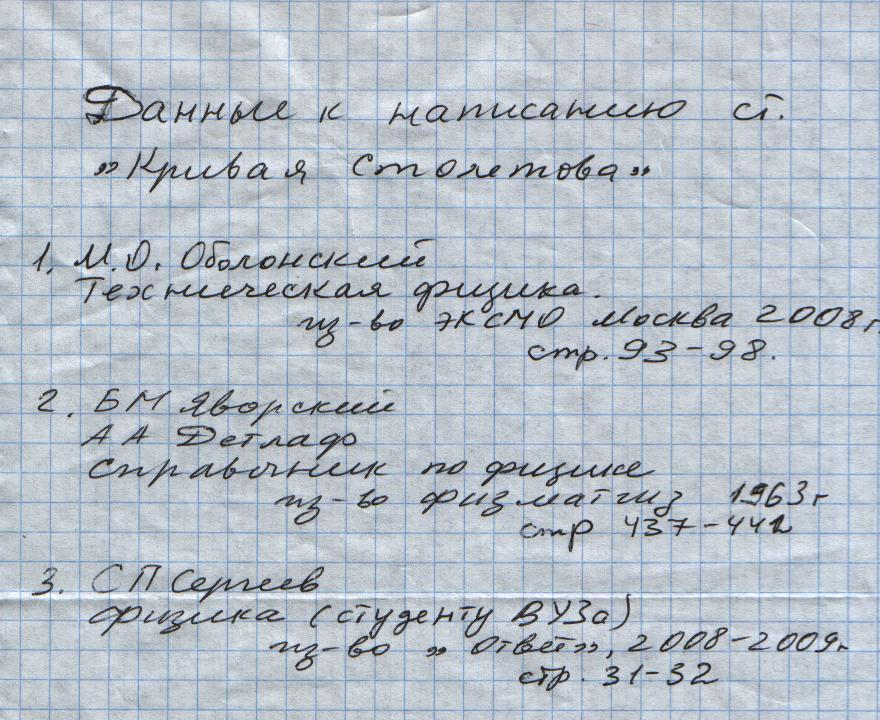 Данные к написанию ст.
„Кривая Столетова"
1. М.О. Оболонский
Техническая физика.
из-во ЭКСМО Москва 2008г.
стр. 93-98.
2. БМ Яворский
АА Детлаф
Справочник по физике
из-во физматгиз 1963г
стр 437-442
3. СП Сергеев
физика (студенту ВУЗа)
из-во „Ответ", 2008-2009г.
стр. 31-32